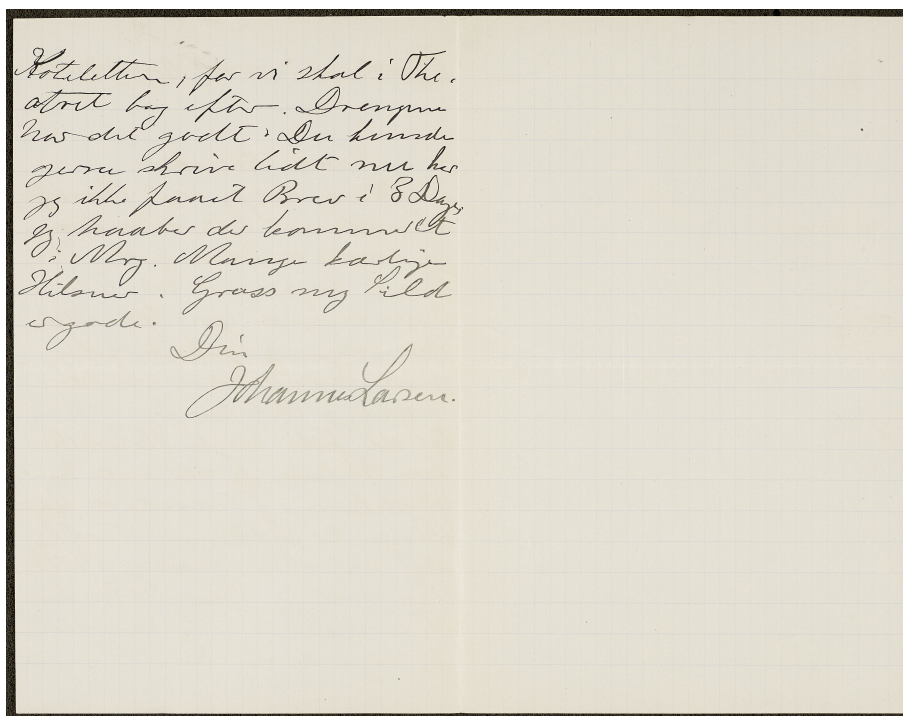 Koteletten, før vi skal i The-
atret bag efter. Drengene
har det godt. Du kunde
gerne skrive lidt nu har
jeg ikke faaet Brev i 3 Dage,
jeg haaber der kommer et
i Mrg. Mange kærlige
Hilsner. Grass mg Sild
er gode.
Din
Johannes Larsen.